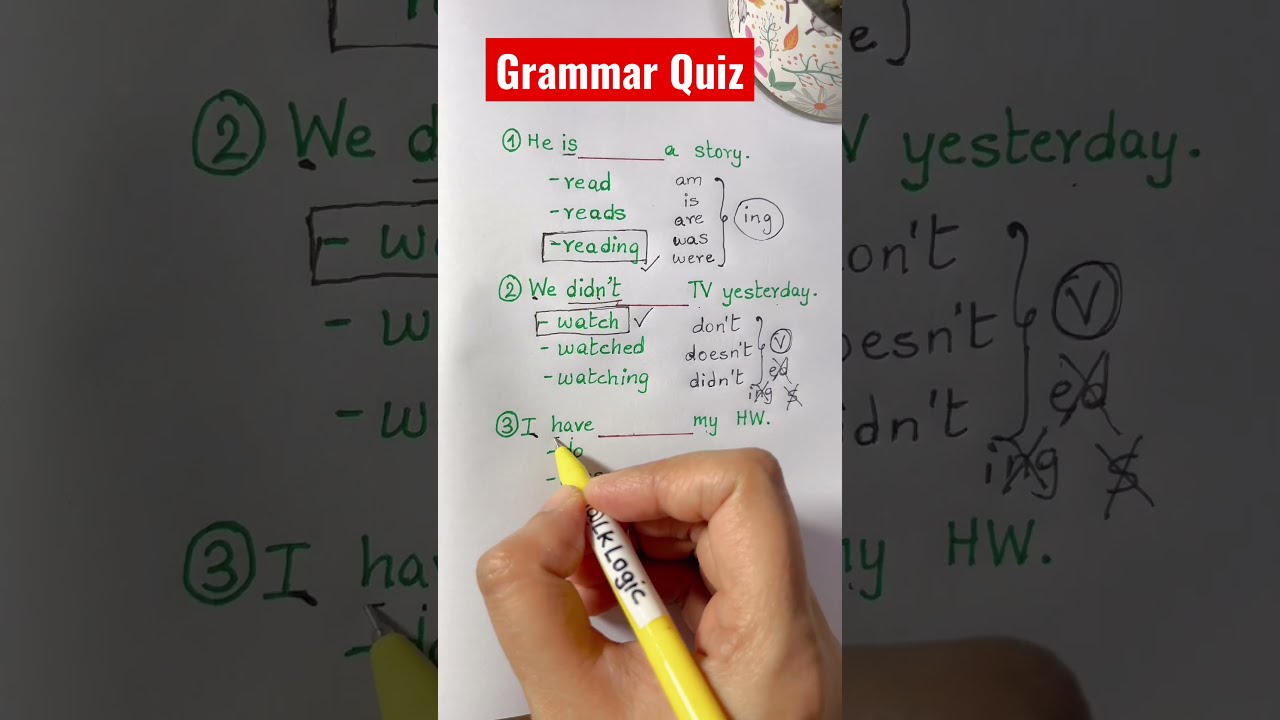 Grammar Quiz
① He is ______ a story.
- read am
- reads is
are
- reading ✓ was
were
ing
② We didn't ______ TV yesterday.
- watch ✓ don't
- watched doesn't
- watching didn't
V
ed
ing s
③ I have ______ my HW.
- do
TalkLogic